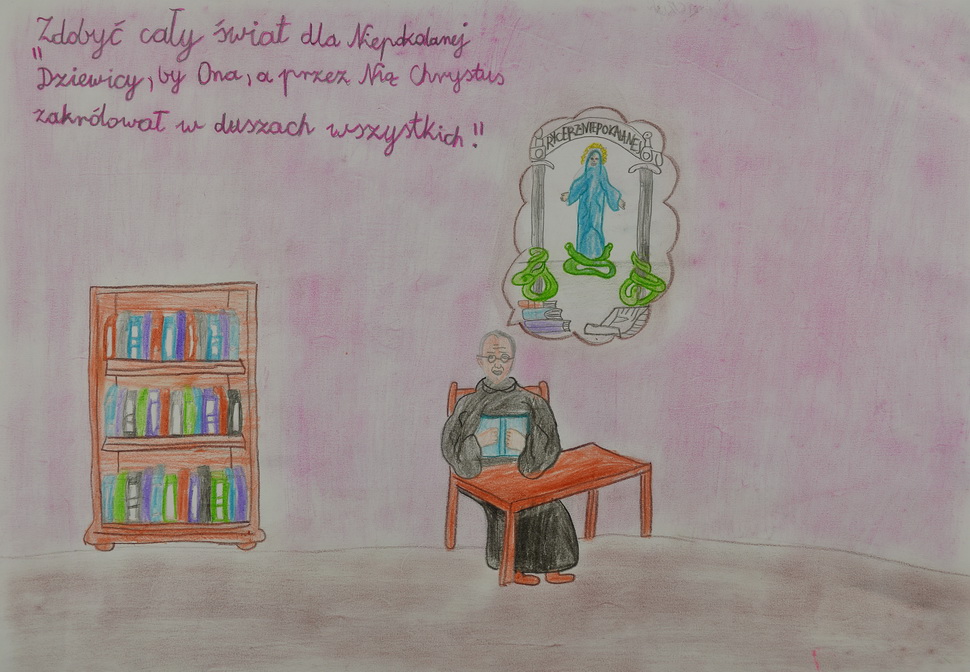 Zdobyć cały świat dla Niepokalanej
"Dziewicy, by Ona, a przez Nią Chrystus
zakrólował w duszach wszystkich!"
RYCERZ NIEPOKALANEJ